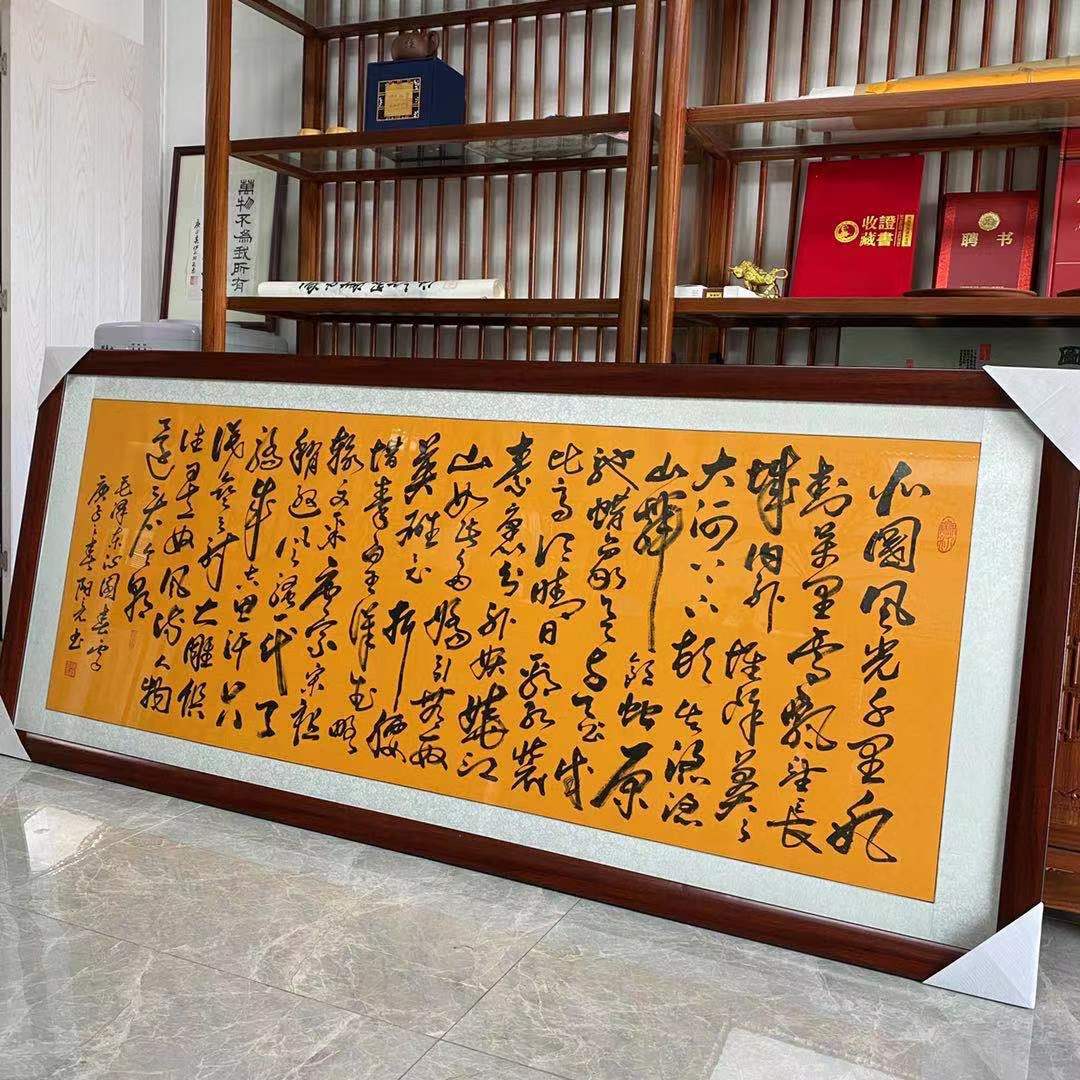 萬物不為我所有
收藏
證書
聘书
北國風光千里冰
封萬里雪飄望長
城内外惟餘莽々
大河上下頓失滔滔
山舞銀蛇原
馳蜡象欲与天公试
比高须晴日看红裝
素裹分外妖嬈江
山如此多嬌引無數
英雄竞折腰
惜秦皇漢武略
输文采唐宗宋祖
稍逊风骚一代天
骄成吉思汗只
识弯弓射大雕俱
往矣数风流人物
還看今朝
毛泽东沁園春雪
庚子之春阳光书